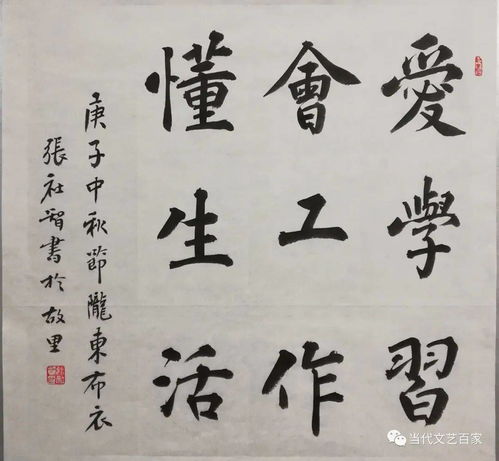 愛學習
會工作
懂生活
庚子中秋節隴東布衣
張社智書於故里
当代文艺百家